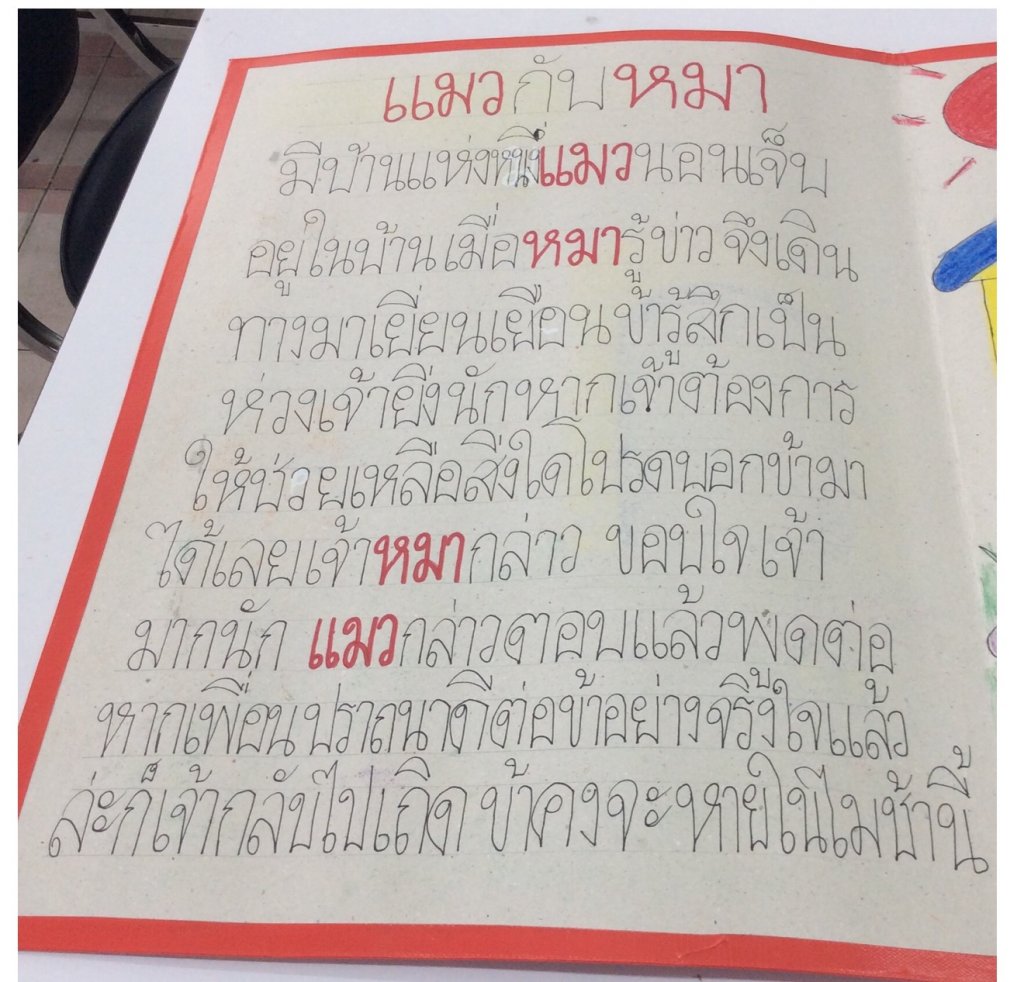 แมวกับหมา
มีบ้านแห่งหนึ่งแมวนอนเจ็บ
อยู่ในบ้านเมื่อหมารู้ข่าว จึงเดิน
ทางมาเยี่ยนเยือน ข้ารู้สึกเป็น
ห่วงเจ้ายิ่งนักหากเจ้าต้องการ
ให้ช่วยเหลือสิ่งใดโปรดบอกข้ามา
ได้เลยเจ้าหมากล่าว ขอบใจ เจ้า
มากนัก แมวกล่าวตอบแล้วพูดต่อ
หากเพื่อน ปราถนาดีต่อข้าอย่างจริงใจแล้ว
ล่ะก็เจ้ากลับไปเถิด ข้าคงจะหายในไม่ช้านี้